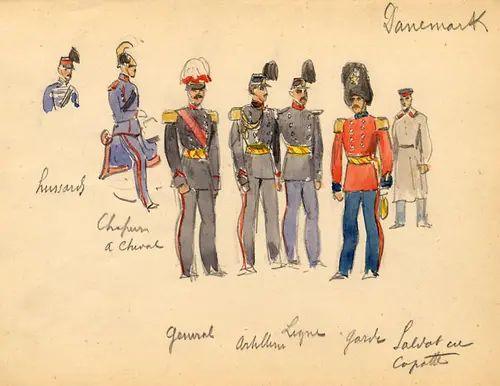 Danemark
hussards
Chasseurs
à cheval
General
Artillerie
Ligne
garde
Soldat en
capotte